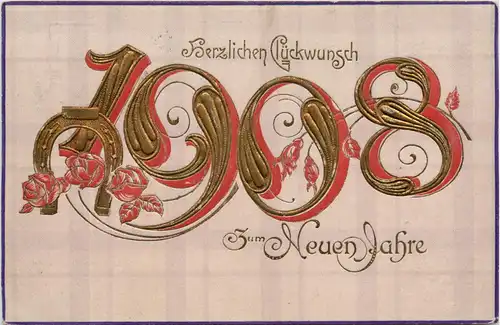 Herzlichen Glückwunsch
1908
Zum Neuen Jahre